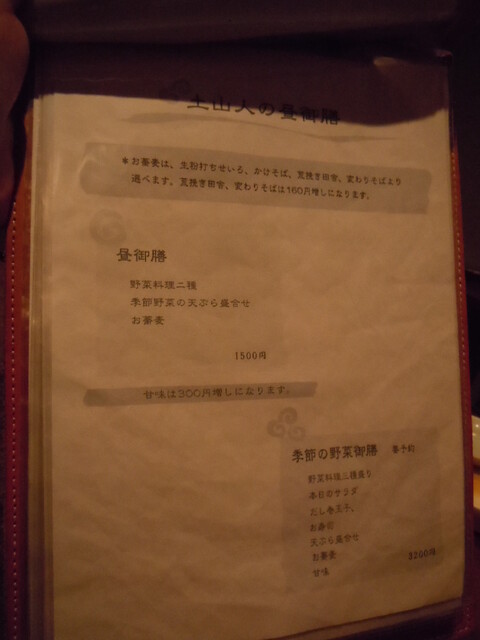 土山人の昼御膳
＊お蕎麦は、生粉打ちせいろ、かけそば、荒挽き田舎、変わりそばより
選べます。荒挽き田舎、変わりそばは160円増しになります。
昼御膳
野菜料理二種
季節野菜の天ぷら盛合せ
お蕎麦
1500円
甘味は300円増しになります。
季節の野菜御膳 要予約
野菜料理三種盛り
本日のサラダ
だし巻玉子、
お寿司
天ぷら盛合せ
お蕎麦 3200円
甘味